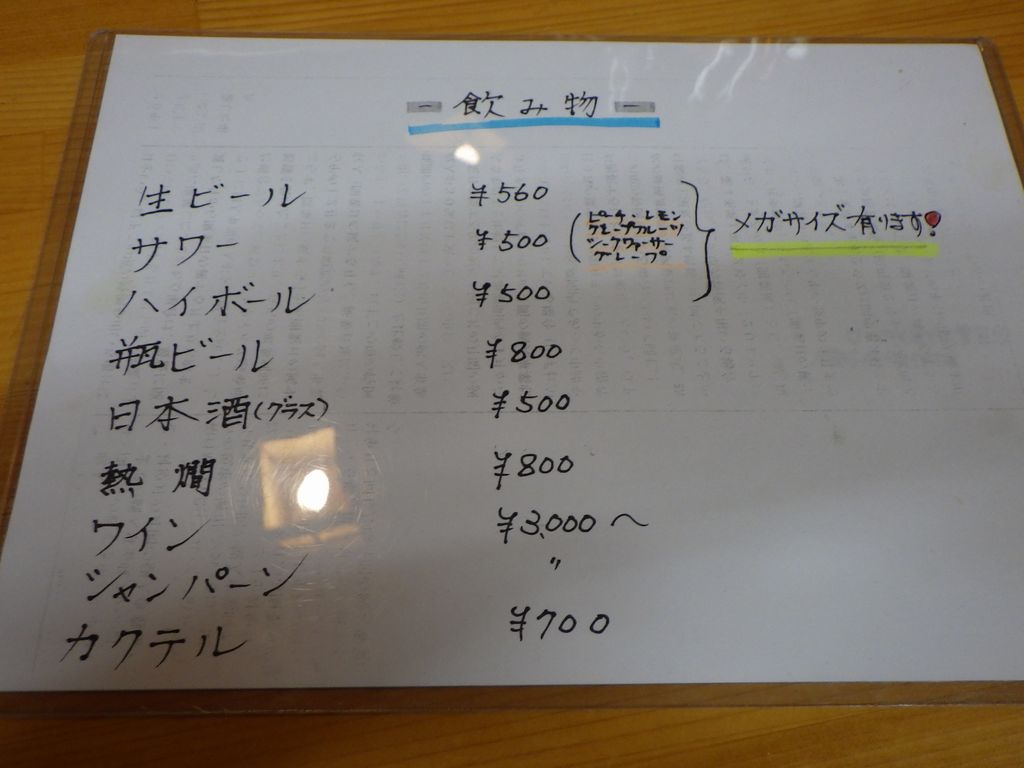 - 飲み物 -
生ビール ¥560
サワー ¥500 (ピーチ・レモン
グレープフルーツ
シークヮーサー
グレープ
ハイボール ¥500
メガサイズ有ります!
瓶ビール ¥800
日本酒(グラス) ¥500
熱燗 ¥800
ワイン ¥3,000〜
シャンパーン 〃
カクテル ¥700